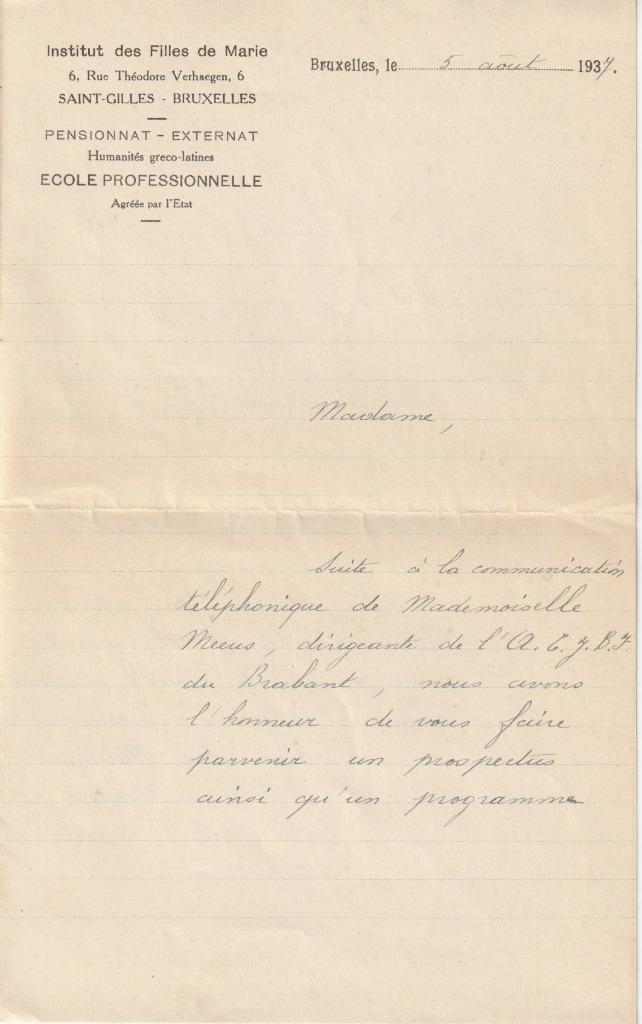 Institut des Filles de Marie
6, Rue Théodore Verhaegen, 6
SAINT-GILLES - BRUXELLES
PENSIONNAT - EXTERNAT
Humanités greco-latines
ECOLE PROFESSIONNELLE
Agréée par l'Etat
Bruxelles, le 5 août 1937.
Madame,
Suite à la communication
téléphonique de Mademoiselle
Meeus, dirigeante de l'A.C.J.B.F.
du Brabant, nous avons
l'honneur de vous faire
parvenir un prospectus
ainsi qu'un programme